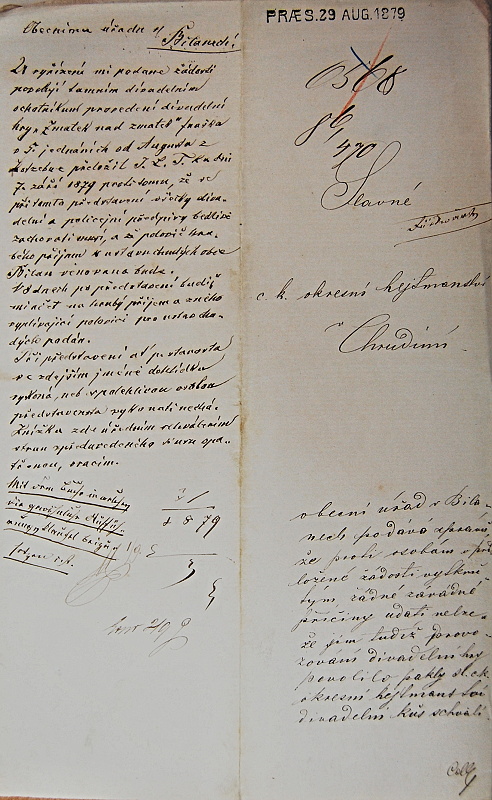 Obecnímu úřadu v
Bilanech!
U vyřízení mi podané žádosti
povoluji tamním divadelním
ochotníkům provedení divadelní
hry „Zmatek nad zmatek" fraška
v 5. jednáních od Augusta z
Kotzebue přeložil J. L. Z. na den
7. září 1879 proti tomu, že se
při tomto představení všecky diva-
delní a policejní předpisy bedlivě
zachovati musí, a že polovic hru-
bého příjmu k ústavu chudých obce
Bilan věnována bude.
V 8 dnech po představení budiž
mi účet na hrubý příjem a z něho
vyplívající polovici pro ústav chu-
dých podán.
Při představení ať p. starosta
ve zdejším jméně dohlídku
vykoná, neb spolehlivou osobou
představenstva vykonati nechá.
Knížka zde úředním schválením
stran předvedeného kusu opa-
třenou, vracím.
31/
8 79
PRÆS. 29 AUG. 1879
6568
86,
470
Slavné
c. k. okresní hejtmanství
v
Chrudimi
obecní úřad v Bila-
nech podává zprávu
že proti osobám v před
ložené žádosti vyskyt
tým, žádné závadné
příčiny udati nelze
že jim tudíž provo-
zování divadelní hry
povolilo pakly sl. c. k.
okresní hejtmanství
divadelní kus schváli-